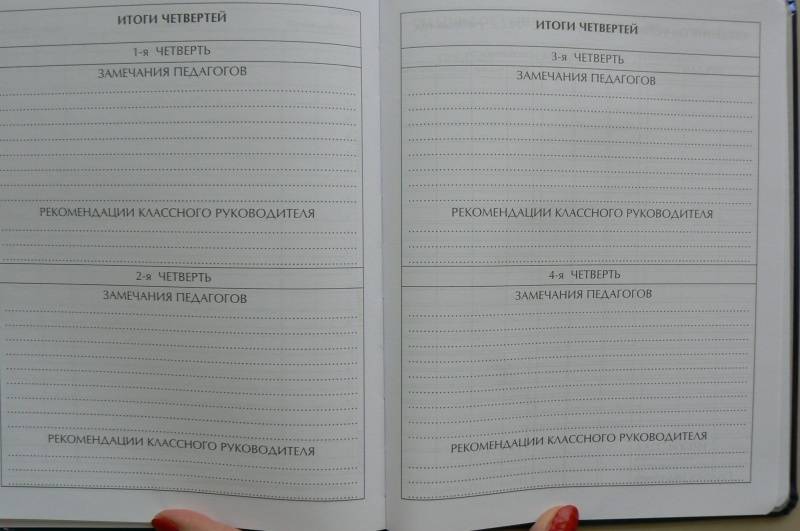 ИТОГИ ЧЕТВЕРТЕЙ
1-я ЧЕТВЕРТЬ
ЗАМЕЧАНИЯ ПЕДАГОГОВ
РЕКОМЕНДАЦИИ КЛАССНОГО РУКОВОДИТЕЛЯ
2-я ЧЕТВЕРТЬ
ЗАМЕЧАНИЯ ПЕДАГОГОВ
РЕКОМЕНДАЦИИ КЛАССНОГО РУКОВОДИТЕЛЯ
ИТОГИ ЧЕТВЕРТЕЙ
3-я ЧЕТВЕРТЬ
ЗАМЕЧАНИЯ ПЕДАГОГОВ
РЕКОМЕНДАЦИИ КЛАССНОГО РУКОВОДИТЕЛЯ
4-я ЧЕТВЕРТЬ
ЗАМЕЧАНИЯ ПЕДАГОГОВ
РЕКОМЕНДАЦИИ КЛАССНОГО РУКОВОДИТЕЛЯ